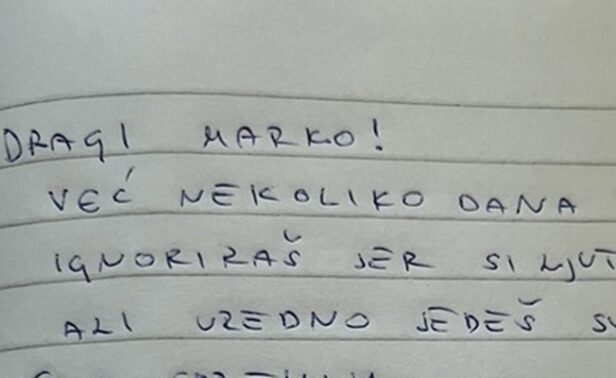 DRAGI MARKO!
VEĆ NEKOLIKO DANA
IGNORIRAŠ JER SI
ALI UZEDNO JEDEŠ